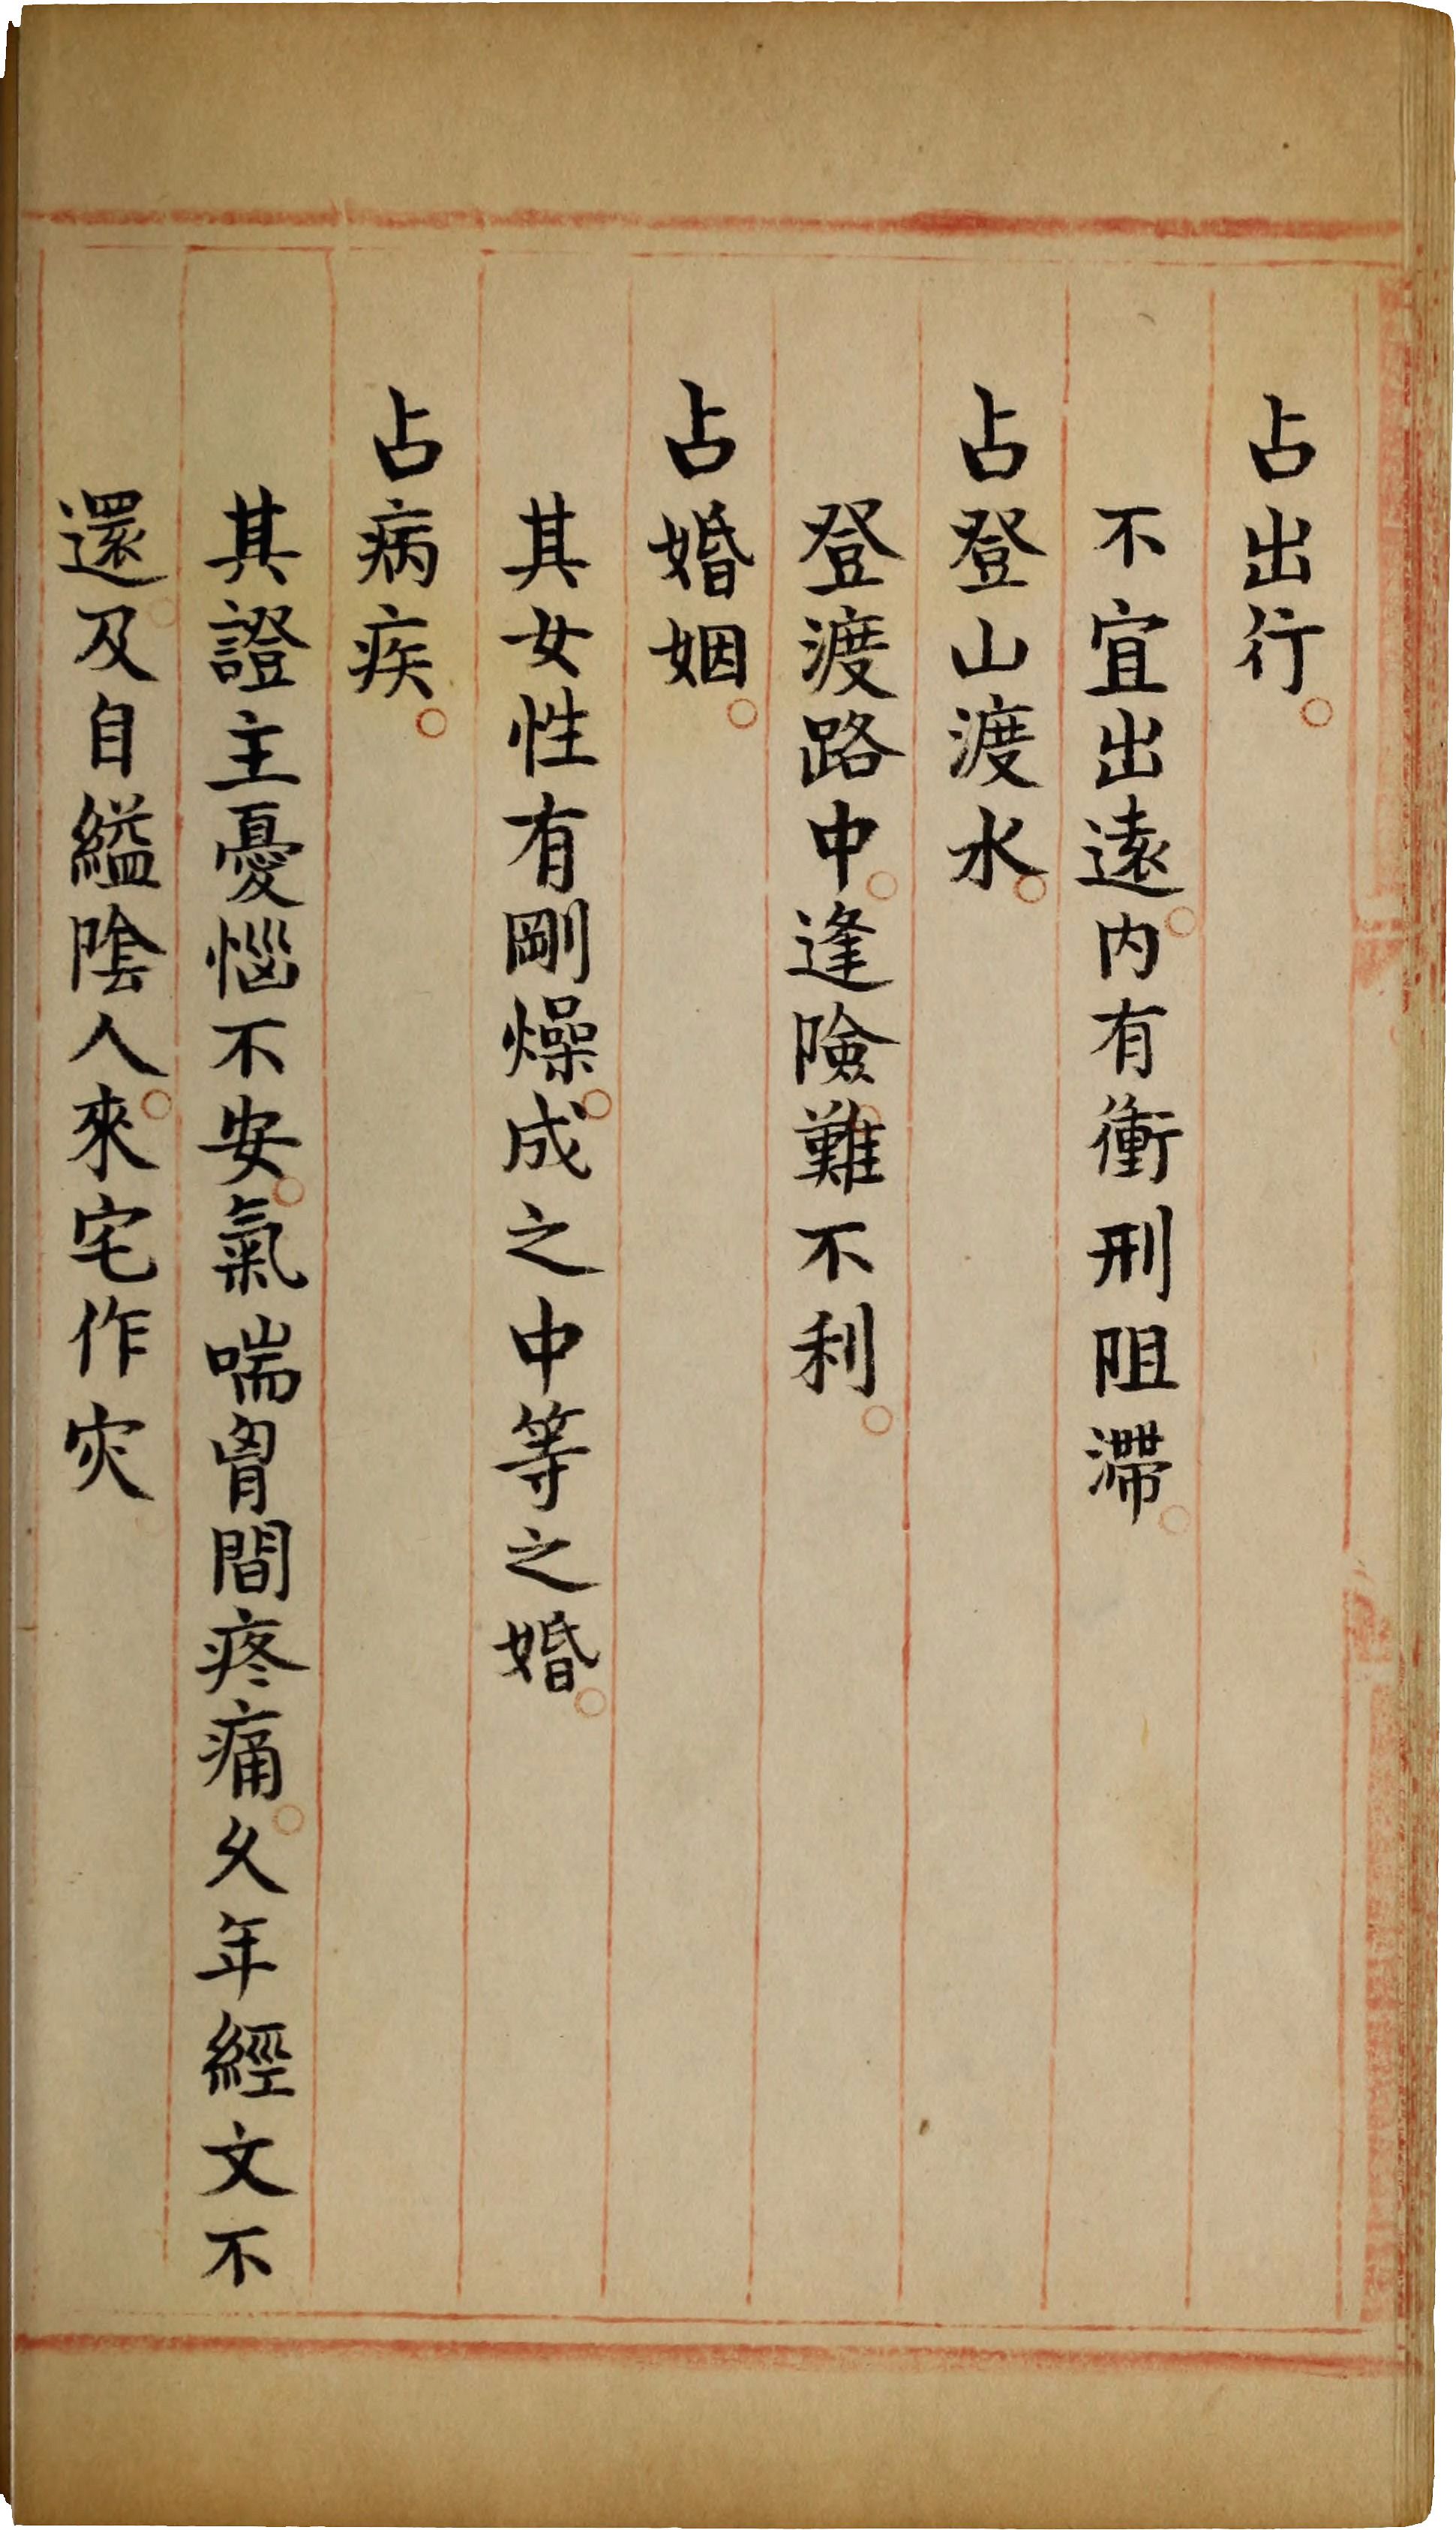 占出行。
不宜出遠。内有衝刑阻滯。
占登山渡水。
登渡路中。逢險難不利。
占婚姻。
其女性有剛燥。成之中等之婚。
占病疾。
其證主憂惱不安。氣喘胷間疼痛。久年經文不
還。及自縊陰人。來宅作灾。